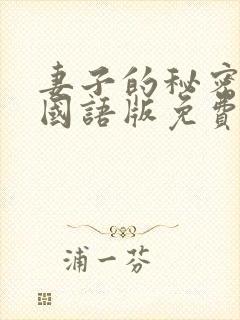 妻子的秘密
國語版免費
浦一芬